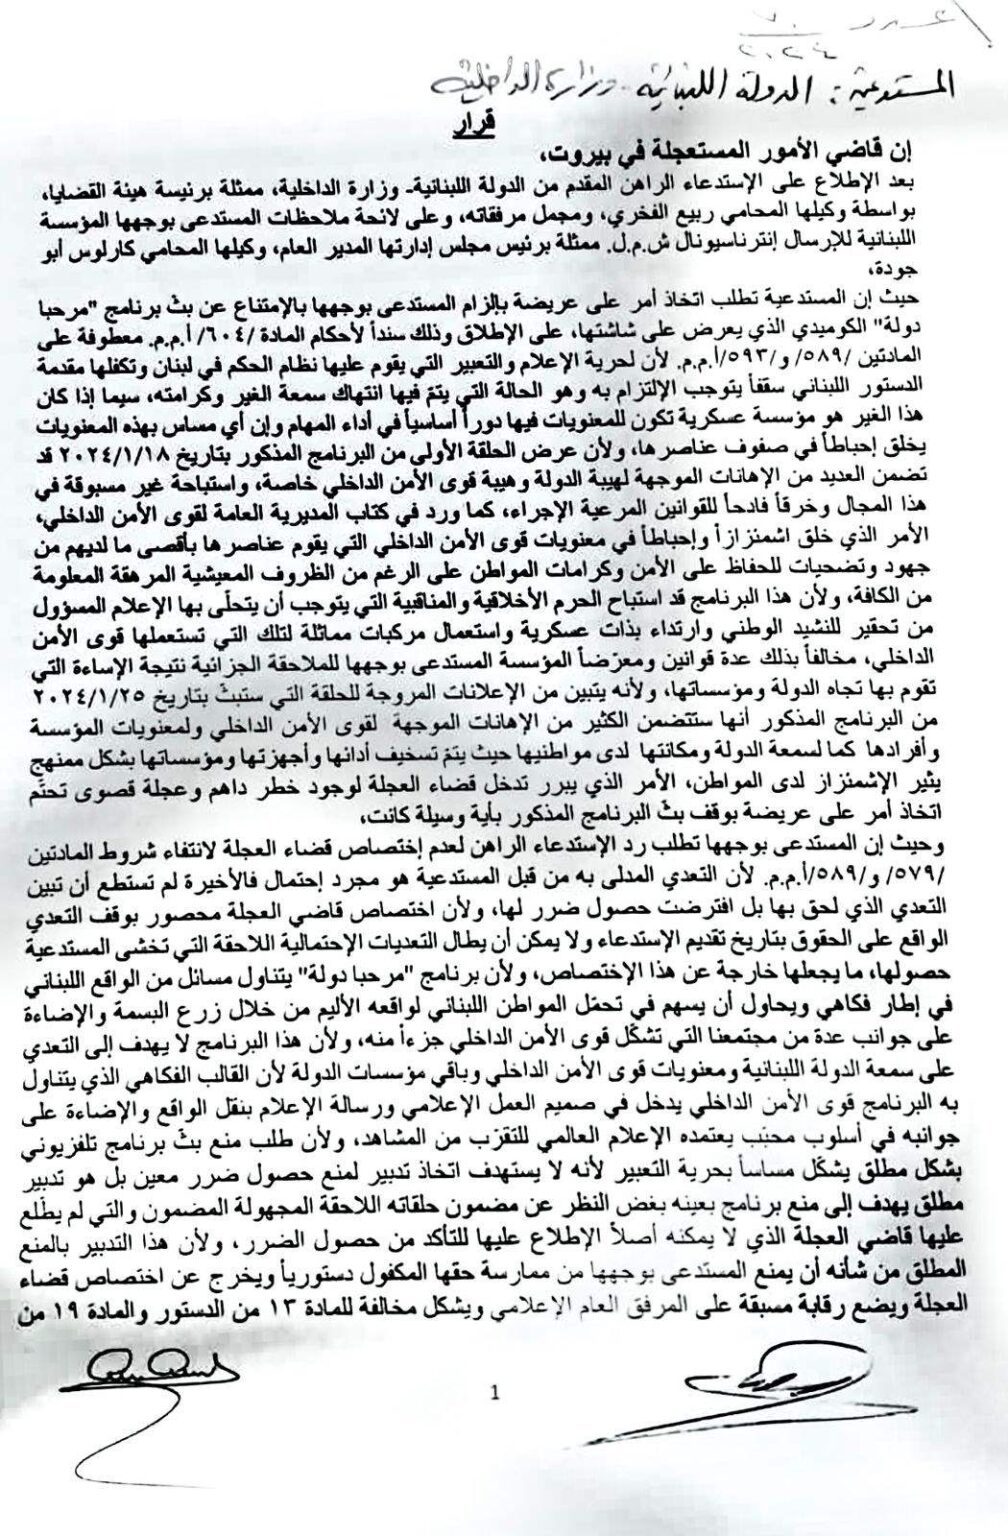 عدد ٢٠
٢٠٢٤
المستدعية : الدولة اللبنانية - وزارة الداخلية
قرار
إن قاضي الأمور المستعجلة في بيروت،
بعد الإطلاع على الإستدعاء الراهن المقدم من الدولة اللبنانية- وزارة الداخلية، ممثلة برئيسة هيئة القضايا،
بواسطة وكيلها المحامي ربيع الفخري، ومجمل مرفقاته، وعلى لائحة ملاحظات المستدعى بوجهها المؤسسة
اللبنانية للإرسال إنترناسيونال ش.م.ل. ممثلة برئيس مجلس إدارتها المدير العام، وكيلها المحامي كارلوس أبو
جودة،
حيث إن المستدعية تطلب اتخاذ أمر على عريضة بإلزام المستدعى بوجهها بالإمتناع عن بثّ برنامج "مرحبا
دولة" الكوميدي الذي يعرض على شاشتها، على الإطلاق وذلك سنداً لأحكام المادة /٦٠٤/ أ.م.م. معطوفة على
المادتين /٥٨٩/ و/٥٩٣/أ.م.م. لأن لحرية الإعلام والتعبير التي يقوم عليها نظام الحكم في لبنان وتكفلها مقدمة
الدستور اللبناني سقفاً يتوجب الإلتزام به وهو الحالة التي يتمّ فيها انتهاك سمعة الغير وكرامته، سيما إذا كان
هذا الغير هو مؤسسة عسكرية تكون للمعنويات فيها دوراً أساسياً في أداء المهام وإن أي مساس بهذه المعنويات
يخلق إحباطاً في صفوف عناصرها، ولأن عرض الحلقة الأولى من البرنامج المذكور بتاريخ ٢٠٢٤/١/١٨ قد
تضمن العديد من الإهانات الموجهة لهيبة الدولة وهيبة قوى الأمن الداخلي خاصة، واستباحة غير مسبوقة في
هذا المجال وخرقاً فادحاً للقوانين المرعية الإجراء، كما ورد في كتاب المديرية العامة لقوى الأمن الداخلي،
الأمر الذي خلق اشمئزازاً وإحباطاً في معنويات قوى الأمن الداخلي التي يقوم عناصرها بأقصى ما لديهم من
جهود وتضحيات للحفاظ على الأمن وكرامات المواطن على الرغم من الظروف المعيشية المرهقة المعلومة
من الكافة، ولأن هذا البرنامج قد استباح الحرم الأخلاقية والمناقبية التي يتوجب أن يتحلّى بها الإعلام المسؤول
من تحقير للنشيد الوطني وارتداء بذات عسكرية واستعمال مركبات مماثلة لتلك التي تستعملها قوى الأمن
الداخلي، مخالفاً بذلك عدة قوانين ومعرّضاً المؤسسة المستدعى بوجهها للملاحقة الجزائية نتيجة الإساءة التي
تقوم بها تجاه الدولة ومؤسساتها، ولأنه يتبين من الإعلانات المروجة للحلقة التي ستبثّ بتاريخ ٢٠٢٤/١/٢٥
من البرنامج المذكور أنها ستتضمن الكثير من الإهانات الموجهة لقوى الأمن الداخلي ولمعنويات المؤسسة
وأفرادها كما لسمعة الدولة ومكانتها لدى مواطنيها حيث يتمّ تسخيف أدائها وأجهزتها ومؤسساتها بشكل ممنهج
يثير الإشمئزاز لدى المواطن، الأمر الذي يبرر تدخل قضاء العجلة لوجود خطر داهم وعجلة قصوى تحتّم
اتخاذ أمر على عريضة بوقف بثّ البرنامج المذكور بأية وسيلة كانت،
وحيث إن المستدعى بوجهها تطلب رد الإستدعاء الراهن لعدم إختصاص قضاء العجلة لانتفاء شروط المادتين
/٥٧٩/ و/٥٨٩/أ.م.م. لأن التعدي المدلى به من قبل المستدعية هو مجرد إحتمال فالأخيرة لم تستطع أن تبين
التعدي الذي لحق بها بل افترضت حصول ضرر لها، ولأن اختصاص قاضي العجلة محصور بوقف التعدي
الواقع على الحقوق بتاريخ تقديم الإستدعاء ولا يمكن أن يطال التعديات الإحتمالية اللاحقة التي تخشى المستدعية
حصولها، ما يجعلها خارجة عن هذا الإختصاص، ولأن برنامج "مرحبا دولة" يتناول مسائل من الواقع اللبناني
في إطار فكاهي ويحاول أن يسهم في تحمّل المواطن اللبناني لواقعه الأليم من خلال زرع البسمة والإضاءة
على جوانب عدة من مجتمعنا التي تشكّل قوى الأمن الداخلي جزءاً منه، ولأن هذا البرنامج لا يهدف إلى التعدي
على سمعة الدولة اللبنانية ومعنويات قوى الأمن الداخلي وباقي مؤسسات الدولة لأن القالب الفكاهي الذي يتناول
به البرنامج قوى الأمن الداخلي يدخل في صميم العمل الإعلامي ورسالة الإعلام بنقل الواقع والإضاءة على
جوانبه في أسلوب محبّب يعتمده الإعلام العالمي للتقرّب من المشاهد، ولأن طلب منع بثّ برنامج تلفزيوني
بشكل مطلق يشكّل مساساً بحرية التعبير لأنه لا يستهدف اتخاذ تدبير لمنع حصول ضرر معين بل هو تدبير
مطلق يهدف إلى منع برنامج بعينه بغض النظر عن مضمون حلقاته اللاحقة المجهولة المضمون والتي لم يطّلع
عليها قاضي العجلة الذي لا يمكنه أصلاً الإطلاع عليها للتأكد من حصول الضرر، ولأن هذا التدبير بالمنع
المطلق من شأنه أن يمنع المستدعى بوجهها من ممارسة حقها المكفول دستورياً ويخرج عن اختصاص قضاء
العجلة ويضع رقابة مسبقة على المرفق العام الإعلامي ويشكل مخالفة للمادة ١٣ من الدستور والمادة ١٩ من
1